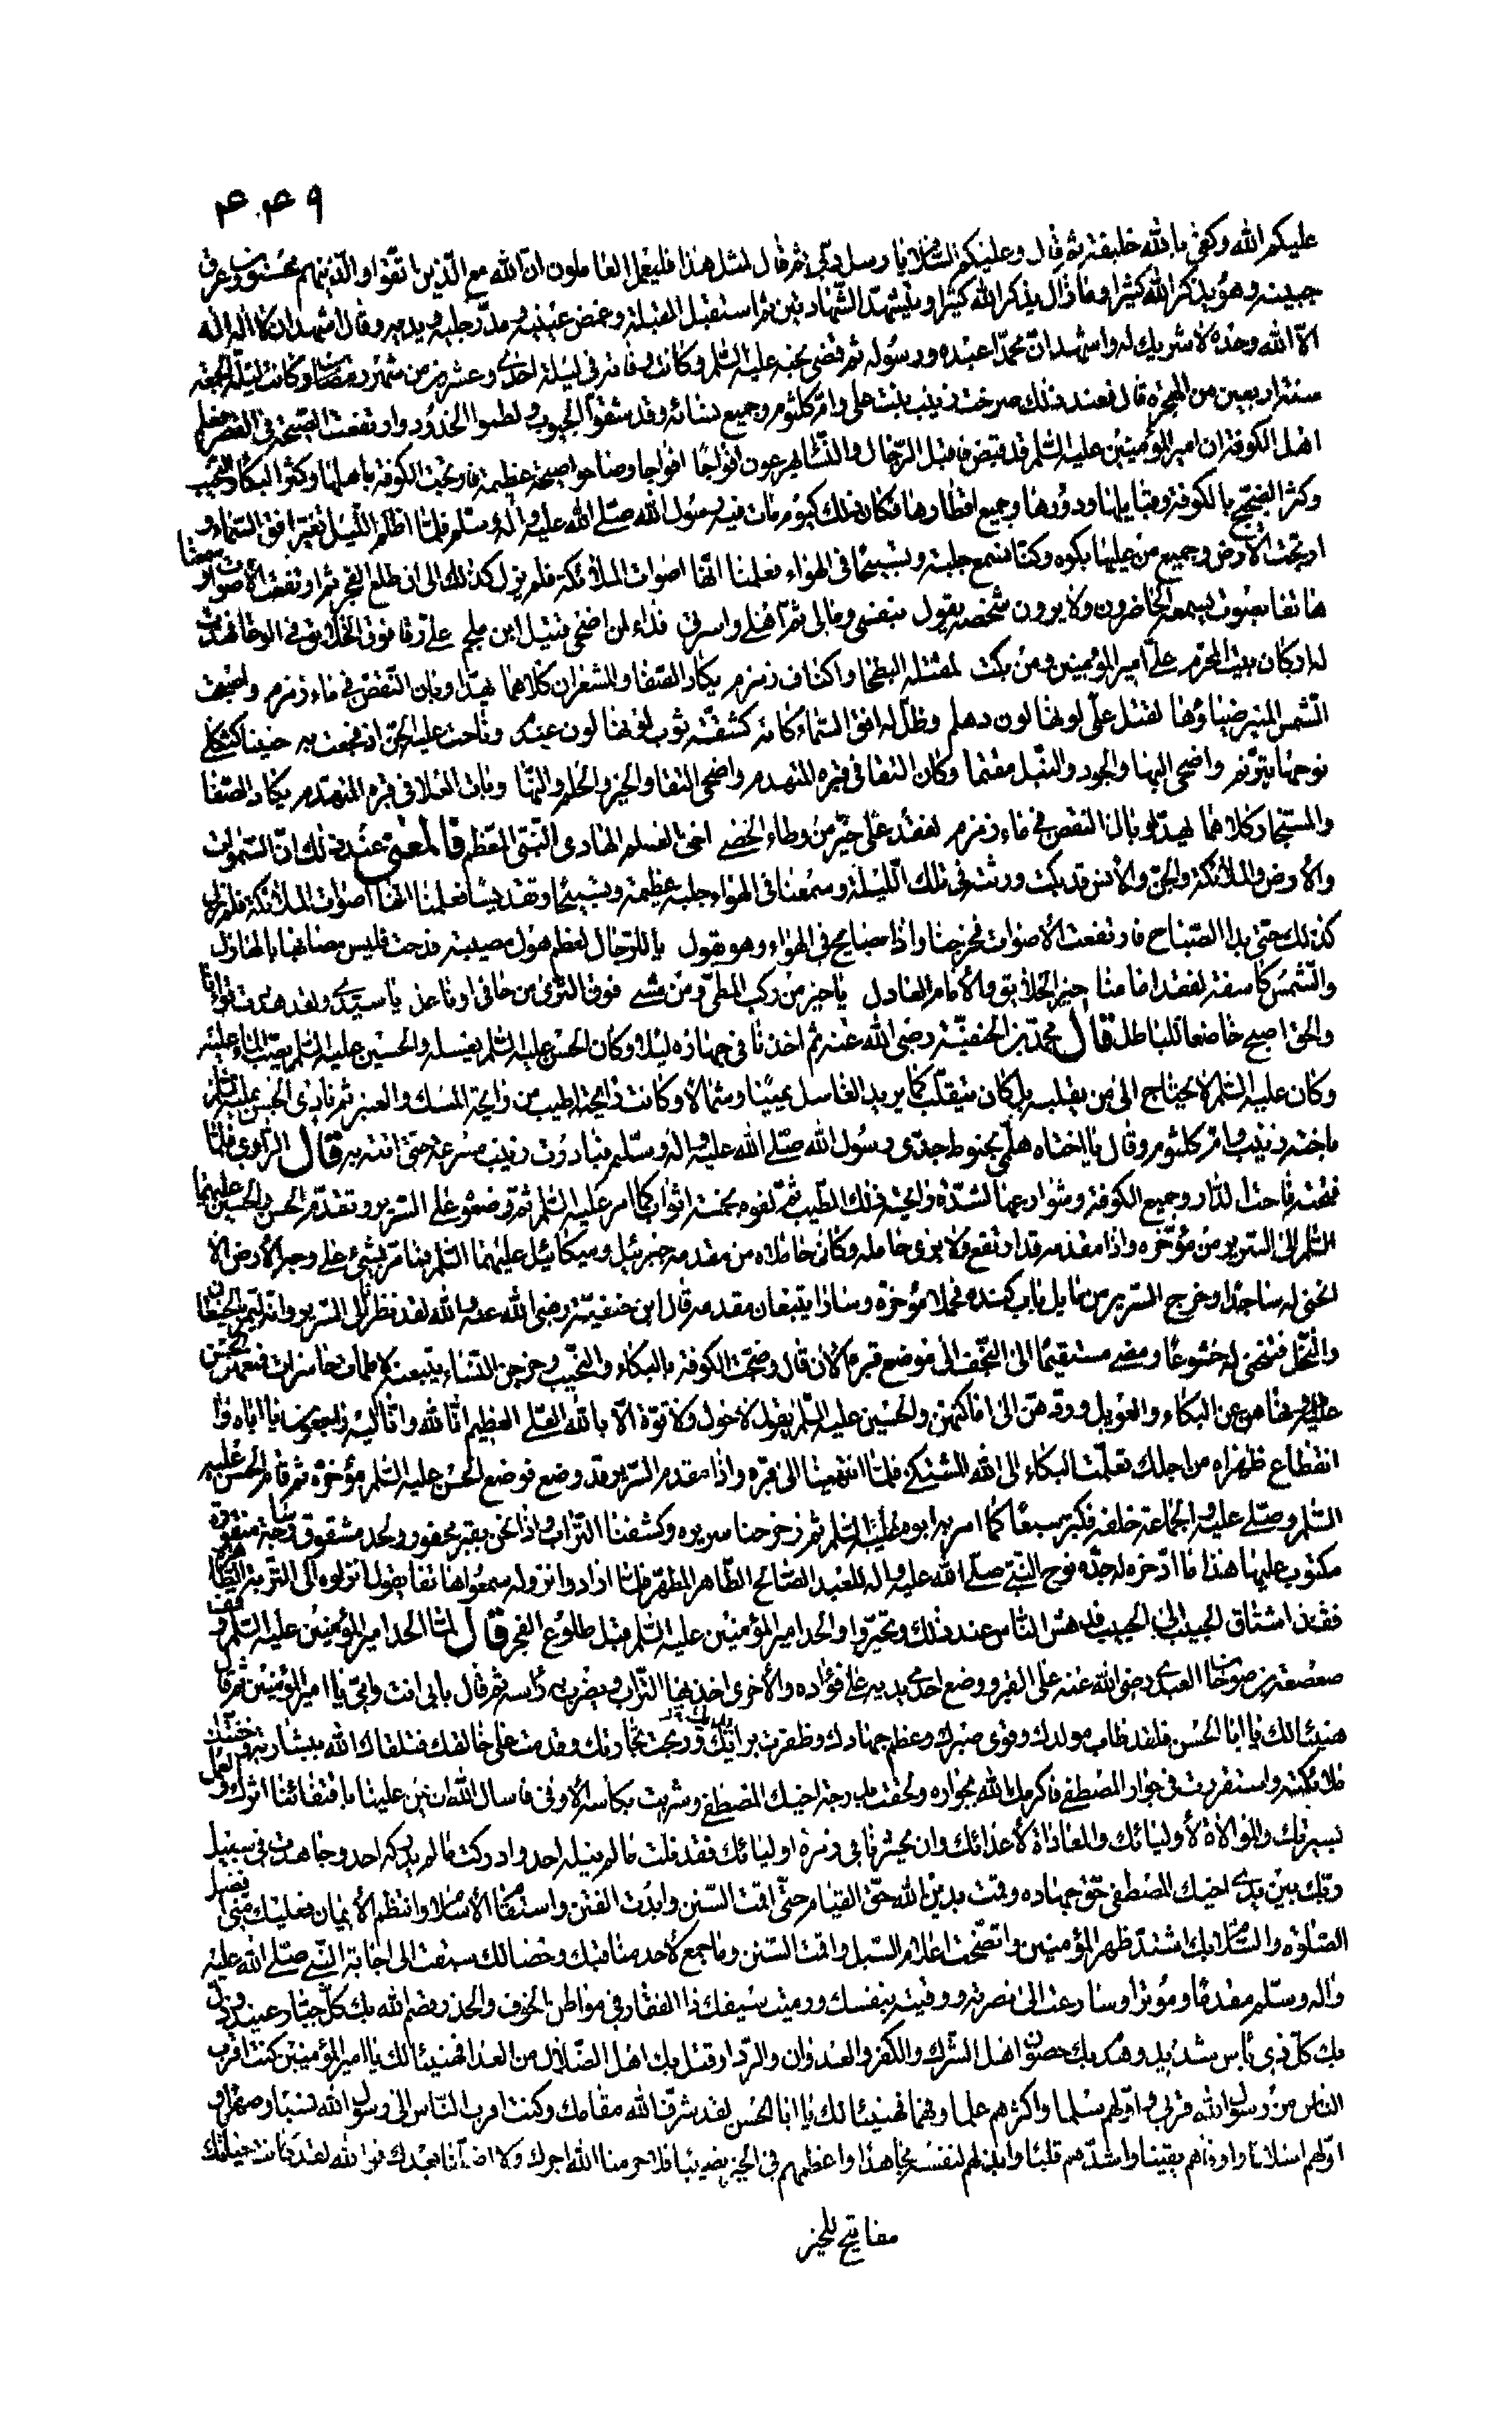 عليكم الله وكفى بالله خليفة ثم قال وعليكم السلام يا رسل ربي ثم قال لمثل هذا فليعمل العاملون ان الله مع الذين اتقوا والذين هم محسنون وعرق
جبينه وهو يذكر الله كثيرا وما زال يذكر الله كثيرا ويتشهد الشهادتين ثم استقبل القبلة وغمض عينيه ومد رجليه ويديه وقال اشهد ان لا اله
الا الله وحده لا شريك له واشهد ان محمدا عبده ورسوله ثم قضى نحبه عليه السلم وكانت وفاته في ليلة احدى وعشرين من شهر رمضان وكانت ليلة الجمعة
سنة اربعين من الهجرة قال فعند ذلك صرخت زينب بنت علي وام كلثوم وجميع نسائه وقد شقوا الجيوب ولطموا الخدود وارتفعت الصيحة في القصر فعلم
اهل الكوفة ان امير المؤمنين عليه السلم قد قبض فاقبل الرجال والنساء يهرعون افواجا افواجا وصاحوا صيحة عظيمة فارتجت الكوفة باهلها وكثر البكاء والنحيب
وكثر الضجيج بالكوفة وقبايلها ودورها وجميع اقطارها فكان ذلك كيوم مات فيه رسول الله صلى الله عليه واله وسلم فلما اظلم الليل تغير افق السماء و
ارتجت الارض وجميع من عليها بكوه وكنا نسمع جلبة وتسبيحا في الهواء فعلمنا انها اصوات الملائكة فلم يزل كذلك الى ان طلع الفجر ثم ارتفعت الاصوات وسمعنا
هاتفا بصوت يسمعه الحاضرون ولا يرون شخصه يقول بنفسي ومالي ثم اهلي واسرتي فداء لمن اضحى قتيل ابن ملجم علي رقا فوق الخلايق في الوغا فهدت
له اركان بيت المحرم علي امير المؤمنين ومن بكت لمقتله البطحا واكناف زمزم يكاد الصفا والمشعران كلاهما يهدا وبان النقص في ماء زمزم واصبحت
الشمس المنير ضياؤها لقتل علي لونها لون دهلم وظل له افق السماء كانه كشقة ثوب لونها لون عندم وناحت عليه الجن اذ فجعت به حنينا كثكلى
نوحها بترنم واضحى البها والجود والنبل مقتما وكان التقا في قبره المتهدم واضحى التقا والخير والحلم والنها وبات العلا في قبره المتهدم يكاد الصفا
والمستجار كلاهما يهد وبان النقص في ماء زمزم لفقد علي خير من وطاء الحصى اخي العالم الهادي النبي المعظم قال المعنى عند ذلك ان السموات
والارض والملائكة والجن والانس قد بكت ورثت في تلك الليلة وسمعنا في الهواء جلبة عظيمة وتسبيحا وتقديسا فعلمنا انها اصوات الملائكة فلم تزل
كذلك حتى بدا الصباح فارتفعت الاصوات فخرجنا واذا بصايح في الهواء وهو يقول يا للرجال لعظم هول مصيبة فدحت فليس مصابها بالهازل
والشمس كاسفة لفقد امامنا خير الخلايق والامام العادل يا خير من ركب المطي ومن مشى فوق الثرى من حافي او ناعل يا سيدي ولقد هددت قوانا
والحق اصبح خاضعا للباطل قال محمد بن الحنفية رضي الله عنه ثم اخذنا في جهازه ليلا وكان الحسن عليه السلم يغسله والحسين عليه السلم يصب الماء عليه
وكان عليه السلم لا يحتاج الى من يقلبه بل كان يتقلب كما يريد الغاسل يمينا وشمالا وكانت رايحته اطيب من رايحة المسك والعنبر ثم نادى الحسن عليه السلم
باخته زينب وام كلثوم وقال يا اختاه هلمي بحنوط جدي رسول الله صلى الله عليه واله وسلم فبادرت زينب مسرعة حتى اتته به قال الراوي فلما
فتحته فاحت الدار وجميع الكوفة وشوارعها لشدة رايحة ذلك الطيب ثم لفوه بخمسة اثواب كما امر عليه السلم ثم وضعوه على السرير وتقدم الحسن والحسين عليهما
السلم الى السرير من مؤخره واذا مقدمه قد ارتفع ولا يرى حامله وكان حاملاه من مقدمه جبرئيل وميكائيل عليهما السلم فما مر بشئ على وجه الارض الا
انحنى له ساجدا وخرج السرير من مايل باب كنده فحملا مؤخره وسارا يتبعان مقدمه قال ابن حنفية رضي الله عنه والله لقد نظرت الى السرير وانه ليمر بالحيطان
والنخل فتنحني له خشوعا ومضى مستقيما الى النجف الى موضع قبره الان قال وضجت الكوفة بالبكاء والنحيب وخرجن النساء يتبعنه لاطمات حاسرات فمنعهن الحسن
عليه السلم ونهاهن عن البكاء والعويل وردهن الى اماكنهن والحسين عليه السلم يقول لا حول ولا قوة الا بالله العلي العظيم انا لله وانا اليه راجعون يا اباه وا
انقطاع ظهراه من اجلك تعلمت البكاء الى الله المشتكى فلما انتهينا الى قبره واذا مقدم السرير قد وضع فوضع الحسن عليه السلم مؤخره ثم قام الحسن عليه
السلم وصلى عليه والجماعة خلفه فكبر سبعا كما امر به ابوه عليه السلم ثم زحزحنا سريره وكشفنا التراب واذا نحن بقبر محفور ولحد مشقوق وساجة منقورة
مكتوب عليها هذا ما ادخره له جده نوح النبي صلى الله عليه واله للعبد الصالح الطاهر المطهر فلما ارادوا نزوله سمعوا هاتفا يقول انزلوه الى التربة الطاهرة
فقد اشتاق الحبيب الى الحبيب فدهش الناس عند ذلك وتحيروا والحد امير المؤمنين عليه السلم قبل طلوع الفجر قال لما الحد امير المؤمنين عليه السلم وقف
صعصعة بن صوحان العبدي رضي الله عنه على القبر ووضع احدى يديه على فؤاده والاخرى اخذ بها التراب ويضرب به راسه ثم قال بابي انت وامي يا امير المؤمنين ثم قال
هنيئا لك يا ابا الحسن فلقد طاب مولدك وقوي صبرك وعظم جهادك وظفرت برايك وربحت تجارتك وقدمت على خالقك فتلقاك الله ببشارته وحفتك
ملائكته واستقررت في جوار المصطفى فاكرمك الله بجواره ولحقت بدرجة اخيك المصطفى وشربت بكاسه الاوفى فاسال الله ان يمن علينا باقتفائنا اثرك والعمل
بسيرتك والموالاة لاوليائك والمعاداة لاعدائك وان يحشرنا في زمرة اوليائك فقد نلت ما لم ينله احد وادركت ما لم يدركه احد وجاهدت في سبيل
ربك بين يدي اخيك المصطفى حق جهاده وقمت بدين الله حق القيام حتى اقمت السنن وابرت الفتن واستقام الاسلام وانتظم الايمان فعليك مني افضل
الصلوة والسلام بك اشتد ظهر المؤمنين واتضحت اعلام السبل واقمت السنن وما جمع لاحد مناقبك وخصالك سبقت الى اجابة النبي صلى الله عليه
واله وسلم مقدما ومؤثرا وسارعت الى نصرته ووقيته بنفسك ورميت سيفك ذا الفقار في مواطن الخوف والحذر وقصم الله بك كل جبار عنيد وذل
بك كل ذي باس شديد وهدم بك حصون اهل الشرك والكفر والعدوان والردا وقتل بك اهل الضلال من العدا فهنيئا لك يا امير المؤمنين كنت اقرب
الناس من رسول الله قربى واولهم سلما واكثرهم علما وفهما فهنيئا لك يا ابا الحسن لقد شرف الله مقامك وكنت اقرب الناس الى رسول الله نسبا و
اولهم اسلاما واوفاهم يقينا واشدهم قلبا وابذلهم لنفسه مجاهدا واعظمهم في الخير نصيبا فلا حرمنا الله اجرك ولا اضلنا بعدك فوالله لقد كانت حياتك
مفاتيح للخير